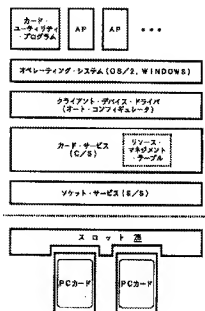 カード・
ユーティリティ
・プログラム
AP
AP
•••
オペレーティング・システム(OS/2, WINDOWS)
クライアント・デバイス・ドライバ
(オート・コンフィギュレータ)
カード・サービス
(C/S)
リソース・
マネジメント
・テーブル
ソケット・サービス(S/S)
スロット
PCカード
PCカード